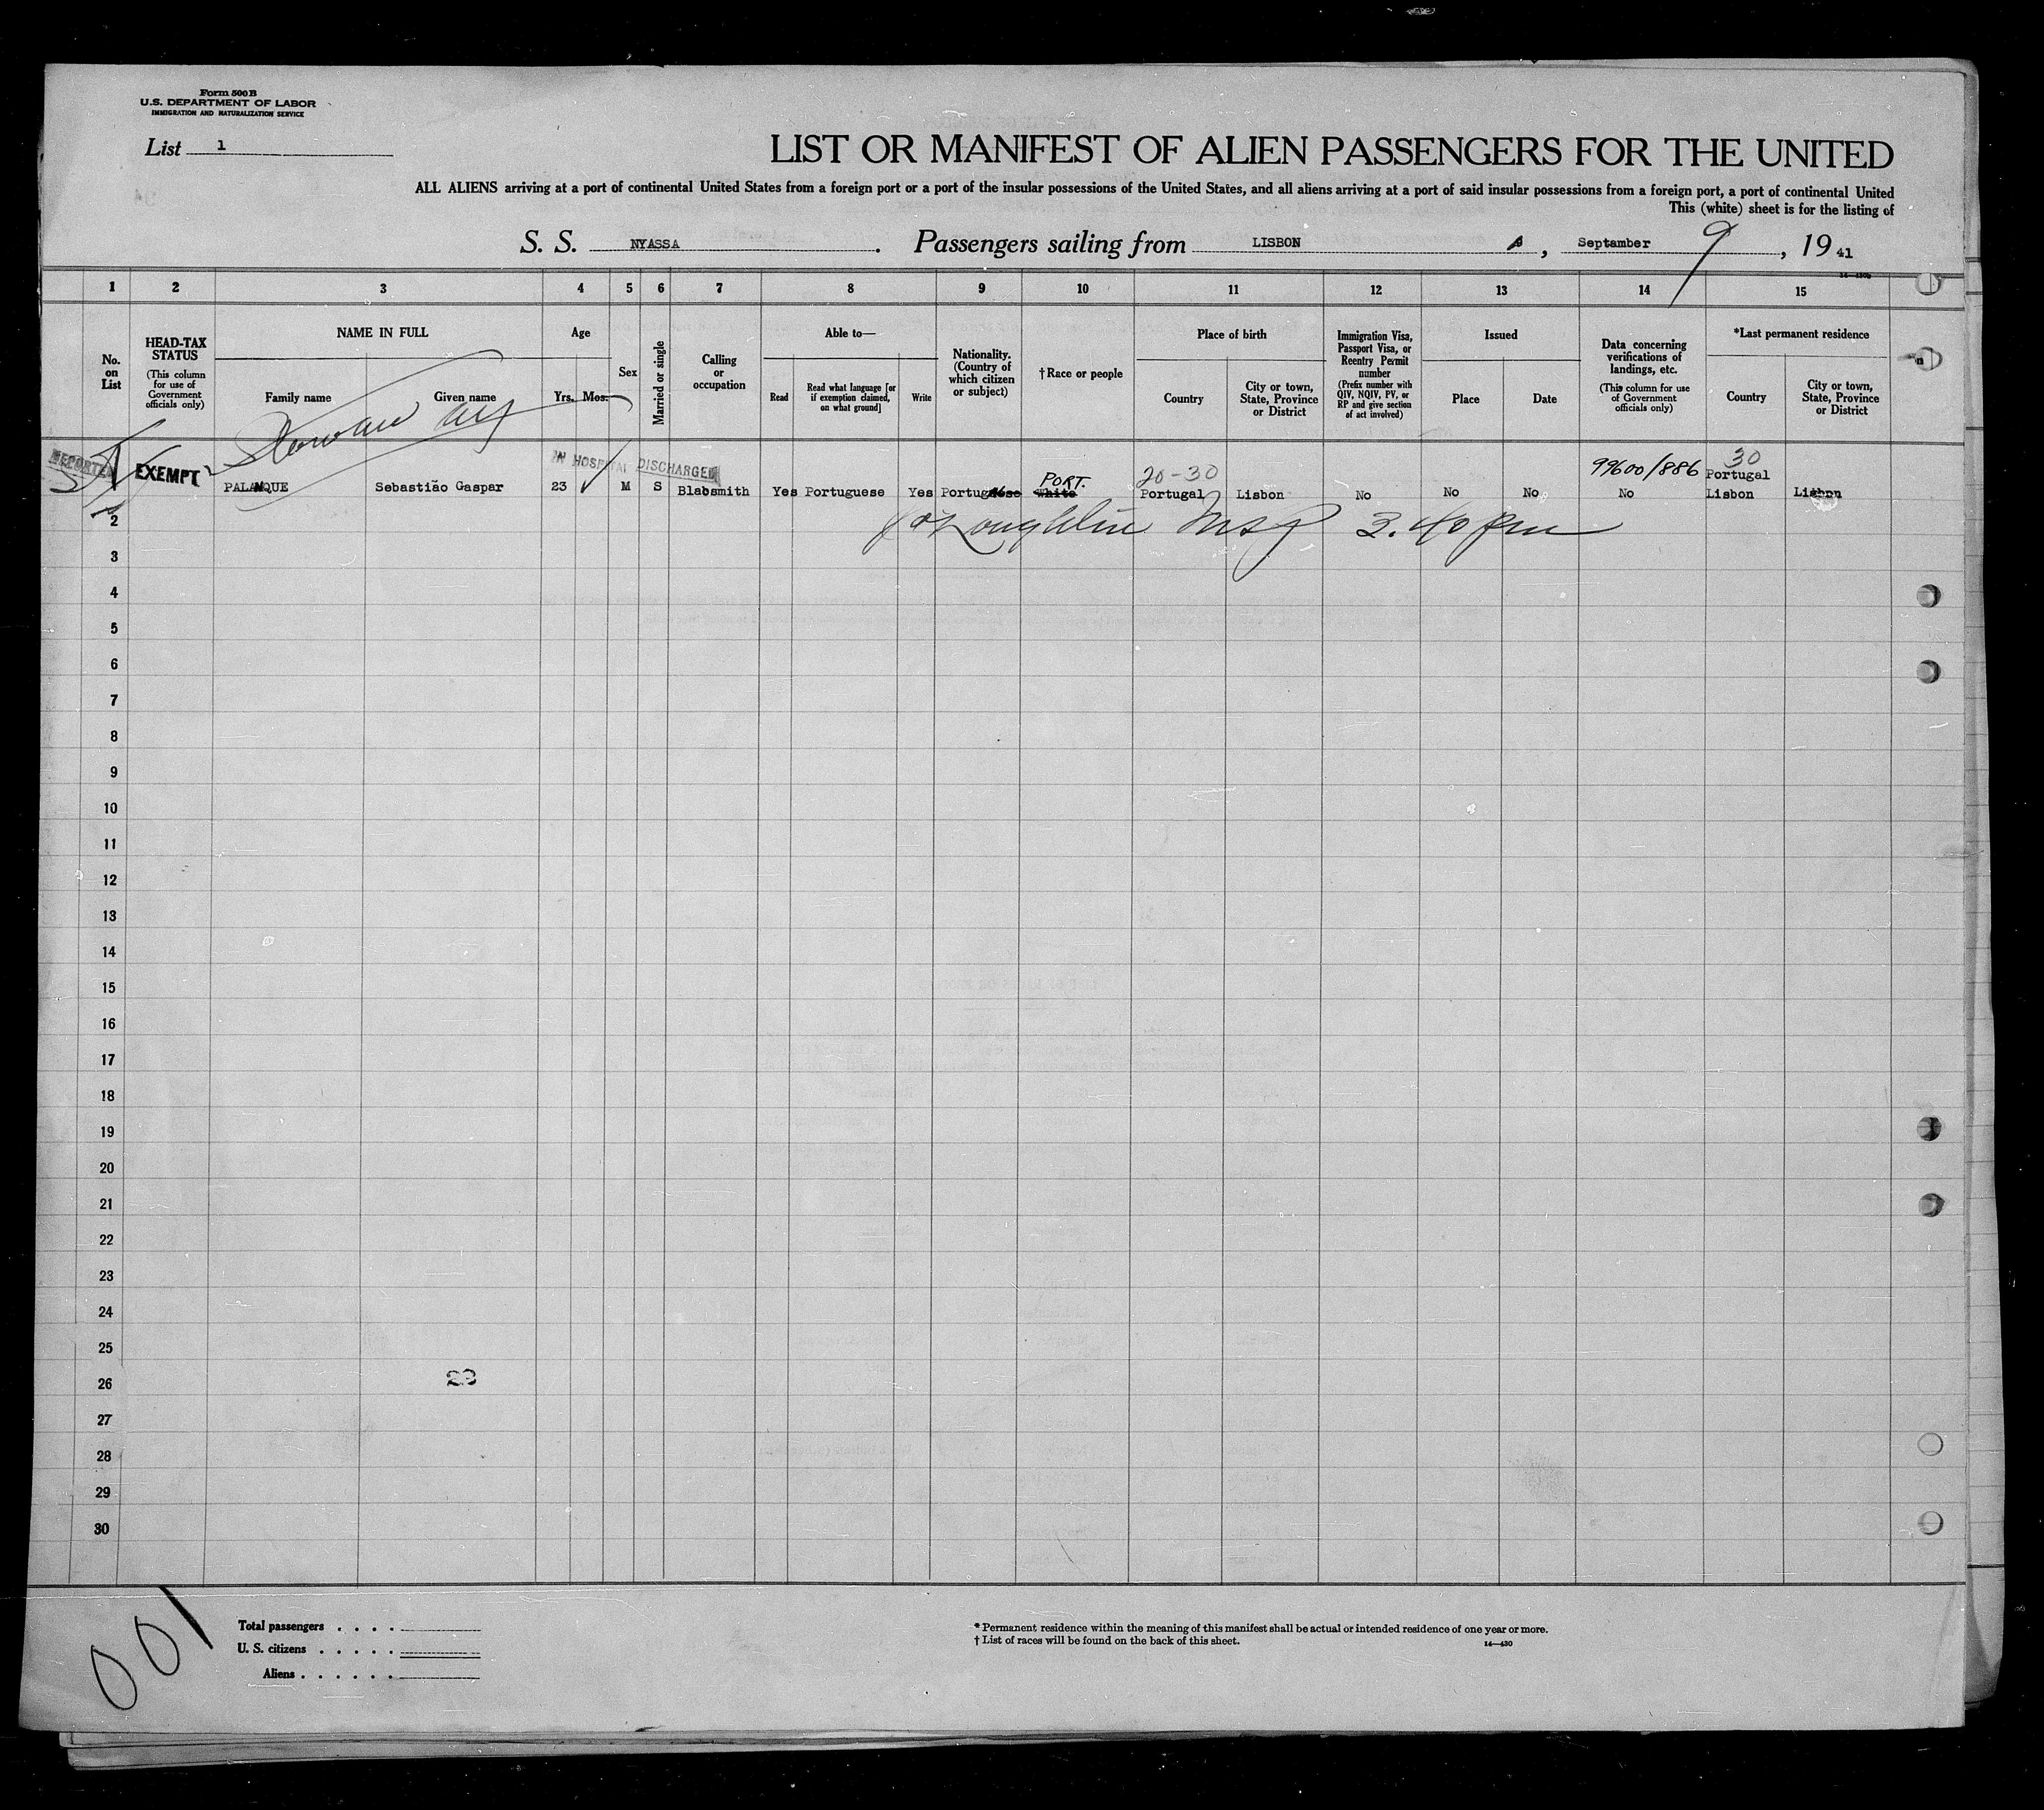 Form 500B
U.S. DEPARTMENT OF LABOR
IMMIGRATION AND NATURALIZATION SERVICE
List 1
LIST OR MANIFEST OF ALIEN PASSENGERS FOR THE UNITED
ALL ALIENS arriving at a port of continental United States from a foreign port or a port of the insular possessions of the United States, and all aliens arriving at a port of said insular possessions from a foreign port, a port of continental United
This (white) sheet is for the listing of
S. S. NYASSA. Passengers sailing from LISBON, September 9, 1941
1 2 3 4 5 6 7 8 9 10 11 12 13 14 15
No. on List
HEAD-TAX STATUS
(This column for use of Government officials only)
NAME IN FULL
Family name
Given name
Age
Yrs.
Mos.
Sex
Married or single
Calling or occupation
Able to—
Read
Read what language [or if exemption claimed, on what ground]
Write
Nationality. (Country of which citizen or subject)
†Race or people
Place of birth
Country
City or town, State, Province or District
Immigration Visa, Passport Visa, or Reentry Permit number
(Prefix number with QIV, NQIV, PV, or RP and give section of act involved)
Issued
Place
Date
Data concerning verifications of landings, etc.
(This column for use of Government officials only)
*Last permanent residence
Country
City or town, State, Province or District
IN HOSPITAL DISCHARGED
EXEMPT
PALANQUE Sebastião Gaspar 23 M S Blabsmith Yes Portuguese Yes Portuguese White PORT. 20-30 Portugal Lisbon No No No 99600/886 No 30 Portugal Lisbon Lisbon
2 3.40 pm
3
4
5
6
7
8
9
10
11
12
13
14
15
16
17
18
19
20
21
22
23
24
25
26
27
28
29
30
23
001
Total passengers . . . .
U. S. citizens . . . . .
Aliens . . . . . .
*Permanent residence within the meaning of this manifest shall be actual or intended residence of one year or more.
† List of races will be found on the back of this sheet.
14—430